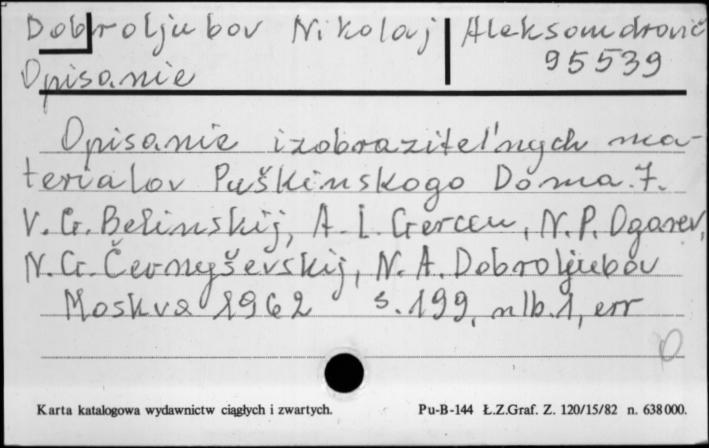 Dobroljubov Nikolaj Aleksandrovič
95539
Opisanie
Opisanie izobrazitel'nych ma-
terialov Puškinskogo Doma. 7.
V. G. Belinskij, A. I. Gercen, N. P. Ogarev,
N. G. Černyševskij, N. A. Dobroljubov
Moskva 1962 s. 199, nlb. 1, err
Karta katalogowa wydawnictw ciągłych i zwartych. Pu-B-144 Ł.Z.Graf. Z. 120/15/82 n. 638 000.